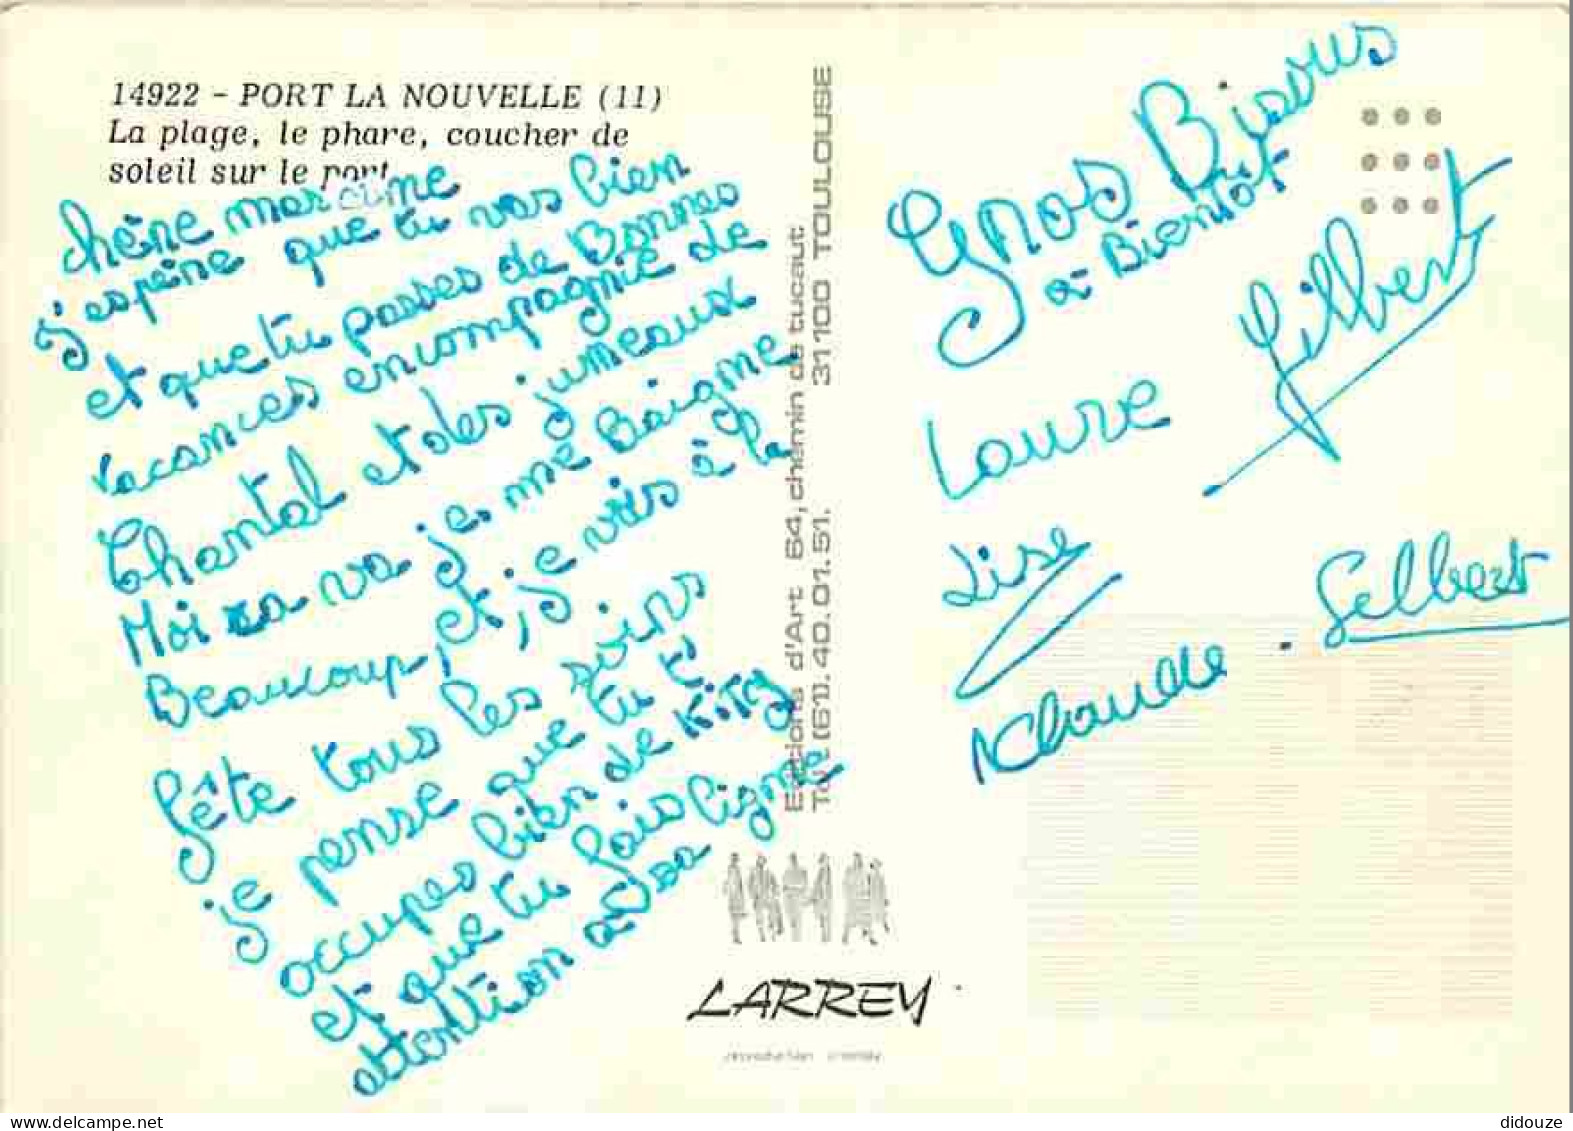 14922 - PORT LA NOUVELLE (11)
La plage, le phare, coucher de
soleil sur le port
chère marcine
j'espère que tu vas bien
et que tu passes de Bonnes
vacances en compagnie de
Chantal et des jumeaux
Moi sa va je me Baigne
Beaucoup, et, je vais à la
fête tous les soirs
je pense que tu t'
occupes bien de Kity
et que tu fais
attention à sa ligne
Editions d'Art 64, chemin de tucaut
Tél. (61). 40.01.51. 31100 TOULOUSE
LARREY
Gros Bisous
à Bientôt
Gilbert
Laure
Lise
Gilbert
didouze